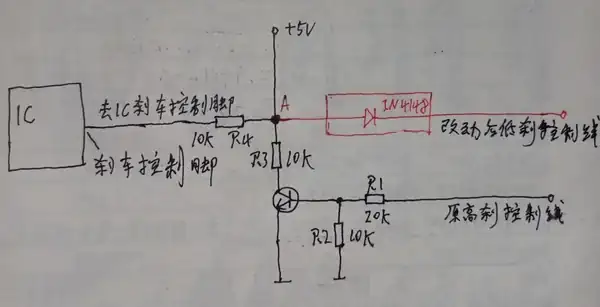 +5V
IC
去IC刹车控制脚
A
IN4148
10K R4
改动后低刹控制线
刹车控制脚
R3 10K
R1
20K
原高刹控制线
R2 10K